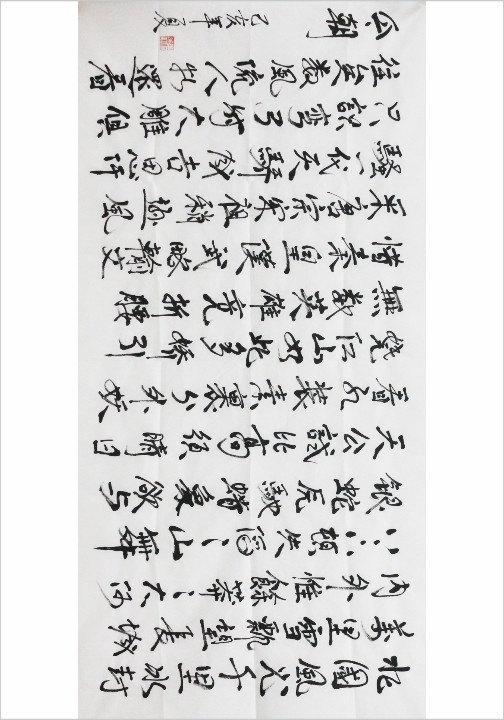 北國風光千里冰封
萬里雪飄望長城
內外惟餘莽〻大河
上下頓失滔〻山舞
銀蛇原馳蠟象欲與
天公試比高須晴日
看紅裝素裹分外妖
嬈江山如此多嬌引
無數英雄競折腰
惜秦皇漢武略輸文
采唐宗宋祖稍遜風
騷一代天驕成吉思汗
只識彎弓射大雕俱
往矣數風流人物還看
今朝
己亥年夏